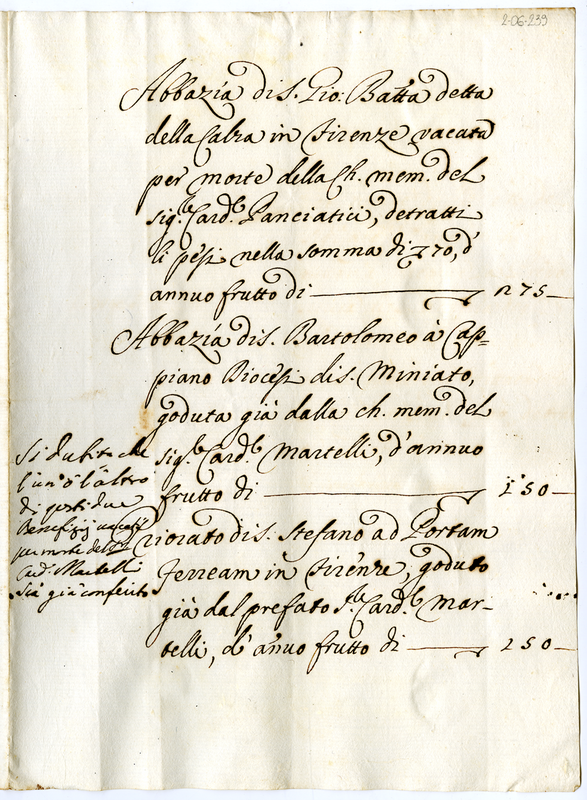 2-06-239
Abbazía di S. Gio: Batta detta
della Calza in Firenze vacata
per morte della Ch. mem. del
sig.r Card.le Panciatici, detratti
li pesi nella somma di 70, d'
annuo frutto di 275
Abbazía di S. Bartolomeo à Cap=
piano Diocesi di S. Miniato,
goduta già dalla ch. mem. del
sig.r Card.le Martelli, d'annuo
frutto di 150
Priorato di S. Stefano ad Portam
Ferream in Firenze, goduto
già dal prefato S.r Card.le Mar-
telli, d'annuo frutto di 250
Si dubita che
l'un' ò l'altro
di questi due
Benefizij vacati
per morte del
Card. Martelli
sia già conferito